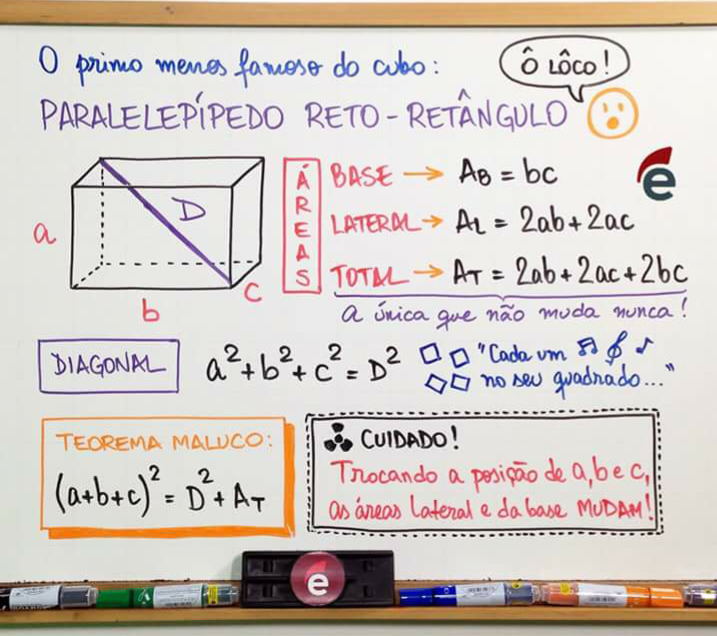 O primo menos famoso do cubo:
Ô LÔCO!
PARALELEPÍPEDO RETO-RETÂNGULO
ÁREAS
BASE → AB = bc
LATERAL → AL = 2ab + 2ac
TOTAL → AT = 2ab + 2ac + 2bc
a única que não muda nunca!
a
b
c
D
e
DIAGONAL
a² + b² + c² = D²
"Cada um
no seu quadrado..."
TEOREMA MALUCO:
(a+b+c)² = D² + AT
CUIDADO!
Trocando a posição de a, b e c,
as áreas lateral e da base MUDAM!
e